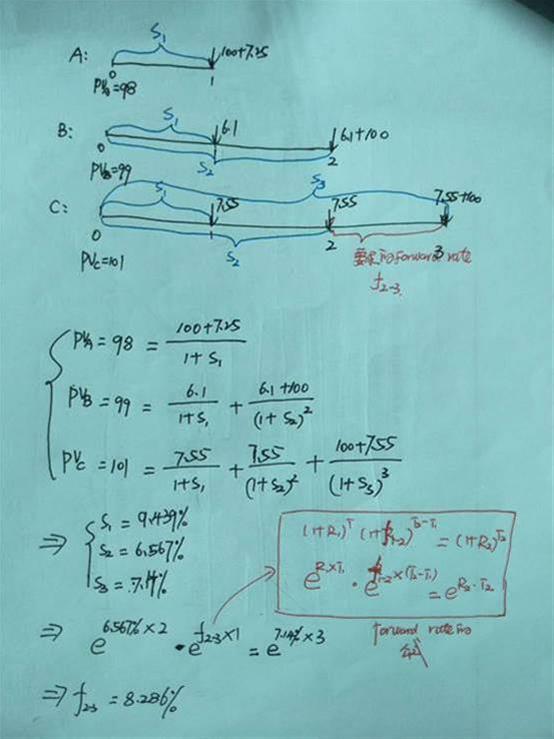 A: S₁ 100+7.25
0 1
PVA=98
B: S₁ 6.1 6.1+100
0 S₂ 2
PVB=99
S₃
C: S₁ 7.55 7.55 7.55+100
0 1 2 3
S₂
PVC=101
要求的forward rate
f₂₋₃
PVA = 98 = (100+7.25)/(1+S₁)
PVB = 99 = 6.1/(1+S₁) + (6.1+100)/(1+S₂)²
PVC = 101 = 7.55/(1+S₁) + 7.55/(1+S₂)² + (100+7.55)/(1+S₃)³
⇒ { S₁ = 9.439%
S₂ = 6.567%
S₃ = 7.14%
(1+R₁)^T₁ (1+f₁₋₂)^(T₂-T₁) = (1+R₂)^T₂
e^(R₁×T₁) · e^(f₁₋₂×(T₂-T₁)) = e^(R₂·T₂)
forward rate的
⇒ e^(6.567%×2) · e^(f₂₋₃×1) = e^(7.14%×3)
⇒ f₂₋₃ = 8.286%